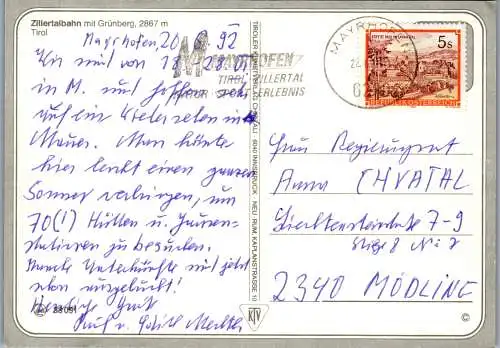 Zillertalbahn mit Grünberg, 2867 m
Tirol
Mayrhofen, 20.6.92
Wir sind von 18. - 28.6.
in M. und hoffen
auf ein Wiedersehen in
Mauer. Man könnte
hier leicht einen ganzen
Sommer verbringen, um
70 (!) Hütten u. Jausen-
stationen zu besuchen.
Manche Unterkünfte sind jetzt
schon ausgebucht!
Herzliche Grüße
u. Edith
MAYRHOFEN
TIROL ZILLERTAL
NATUR SPORT ERLEBNIS
MAYRHOFEN
5s
REPUBLIK ÖSTERREICH
TIROLER KUNSTVERLAG CHIZZALI 6040 INNSBRUCK - NEU RUM, KAPLANSTRASSE 10
KTV
Frau Regierungsrat
Anna CHVATAL
Liechtensteinstraße 7-9
Stiege 8 No 7
2340 MÖDLING
©